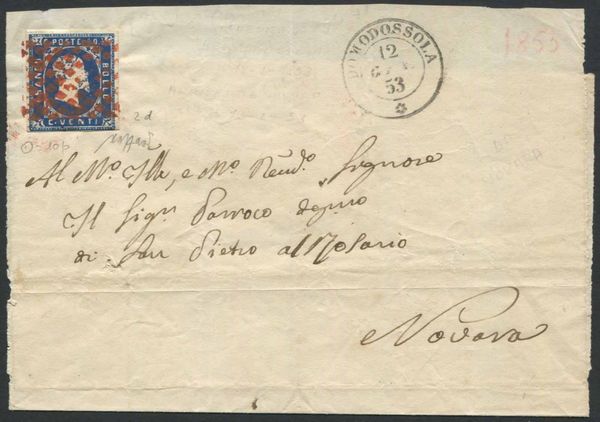 POSTE
BOLLO
C. VENTI
DOMODOSSOLA
12
53
1853
2 d
Al M.º Ill., e M.º Rend.º Signore
Il Sign. Parroco degno
di San Pietro al Rosario
Novara